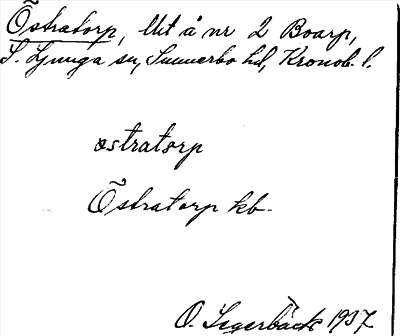 Östratorp, Utt å nr 2 Boarp,
S. Ljunga sn, Sunnerbo hd, Kronob. l.
østratørp
Östratorp kb.
O. Segerbäck 1937